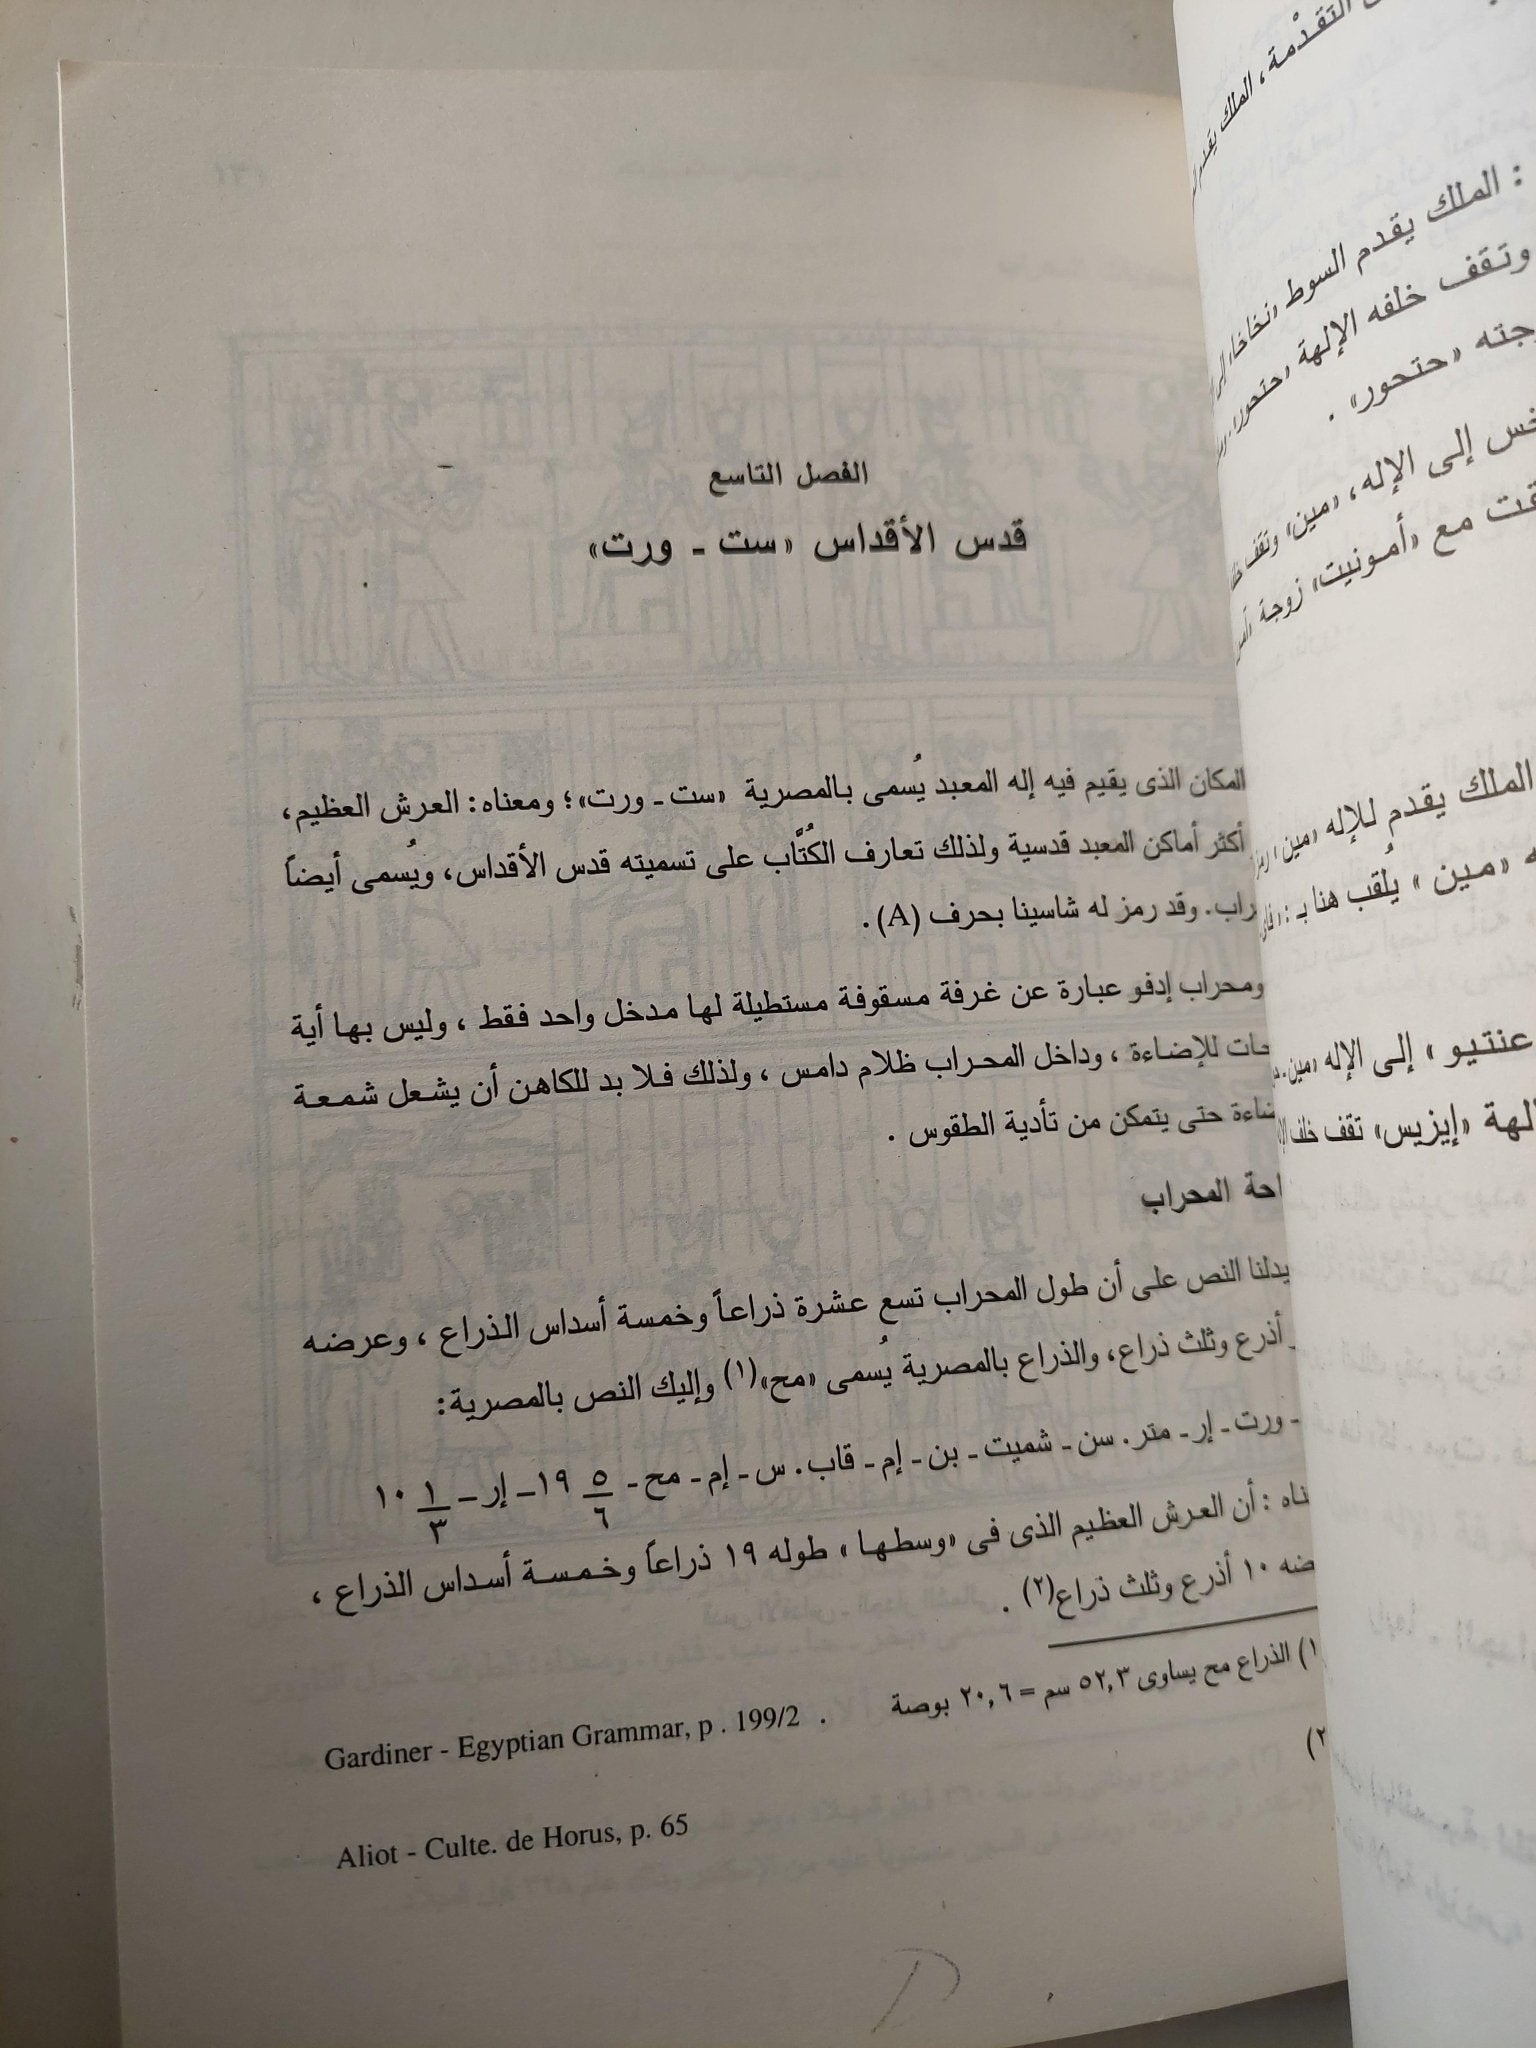 الفصل التاسع
قدس الأقداس «ست ـ ورت»
المكان الذى يقيم فيه إله المعبد يُسمى بالمصرية «ست ـ ورت»؛ ومعناه: العرش العظيم،
أكثر أماكن المعبد قدسية ولذلك تعارف الكُتَّاب على تسميته قدس الأقداس، ويُسمى أيضاً
وقد رمز له شاسينا بحرف (A).
ومحراب إدفو عبارة عن غرفة مسقوفة مستطيلة لها مدخل واحد فقط ، وليس بها أية
للإضاءة ، وداخل المحراب ظلام دامس ، ولذلك فلا بد للكاهن أن يشعل شمعة
حتى يتمكن من تأدية الطقوس .
المحراب
يدلنا النص على أن طول المحراب تسع عشرة ذراعاً وخمسة أسداس الذراع ، وعرضه
أذرع وثلث ذراع، والذراع بالمصرية يُسمى «مح»(١) وإليك النص بالمصرية:
ـ ورت ـ إر ـ متر. سن ـ شميت ـ بن ـ إم ـ قاب. س ـ إم ـ مح ـ ٥/٦ ١٩ ـ إر ـ ١/٣ ١٠
: أن العرش العظيم الذى فى «وسطها» طوله ١٩ ذراعاً وخمسة أسداس الذراع ،
١٠ أذرع وثلث ذراع(٢) .
(١) الذراع مح يساوى ٥٢,٣ سم = ٢٠,٦ بوصة
Gardiner - Egyptian Grammar, p . 199/2 .
(٢
Aliot - Culte. de Horus, p. 65
التقدْمة، الملك يقدم
: الملك يقدم السوط «نخاخا»
وتقف خلفه الإلهة «حتحور»
«حتحور» .
إلى الإله، «مين» وتقف
مع «أمونيت» زوجة
الملك يقدم للإله «مين»
«مين » يُلقب هنا بـ :
عنتيو » إلى الإله «مين
«إيزيس» تقف خلف